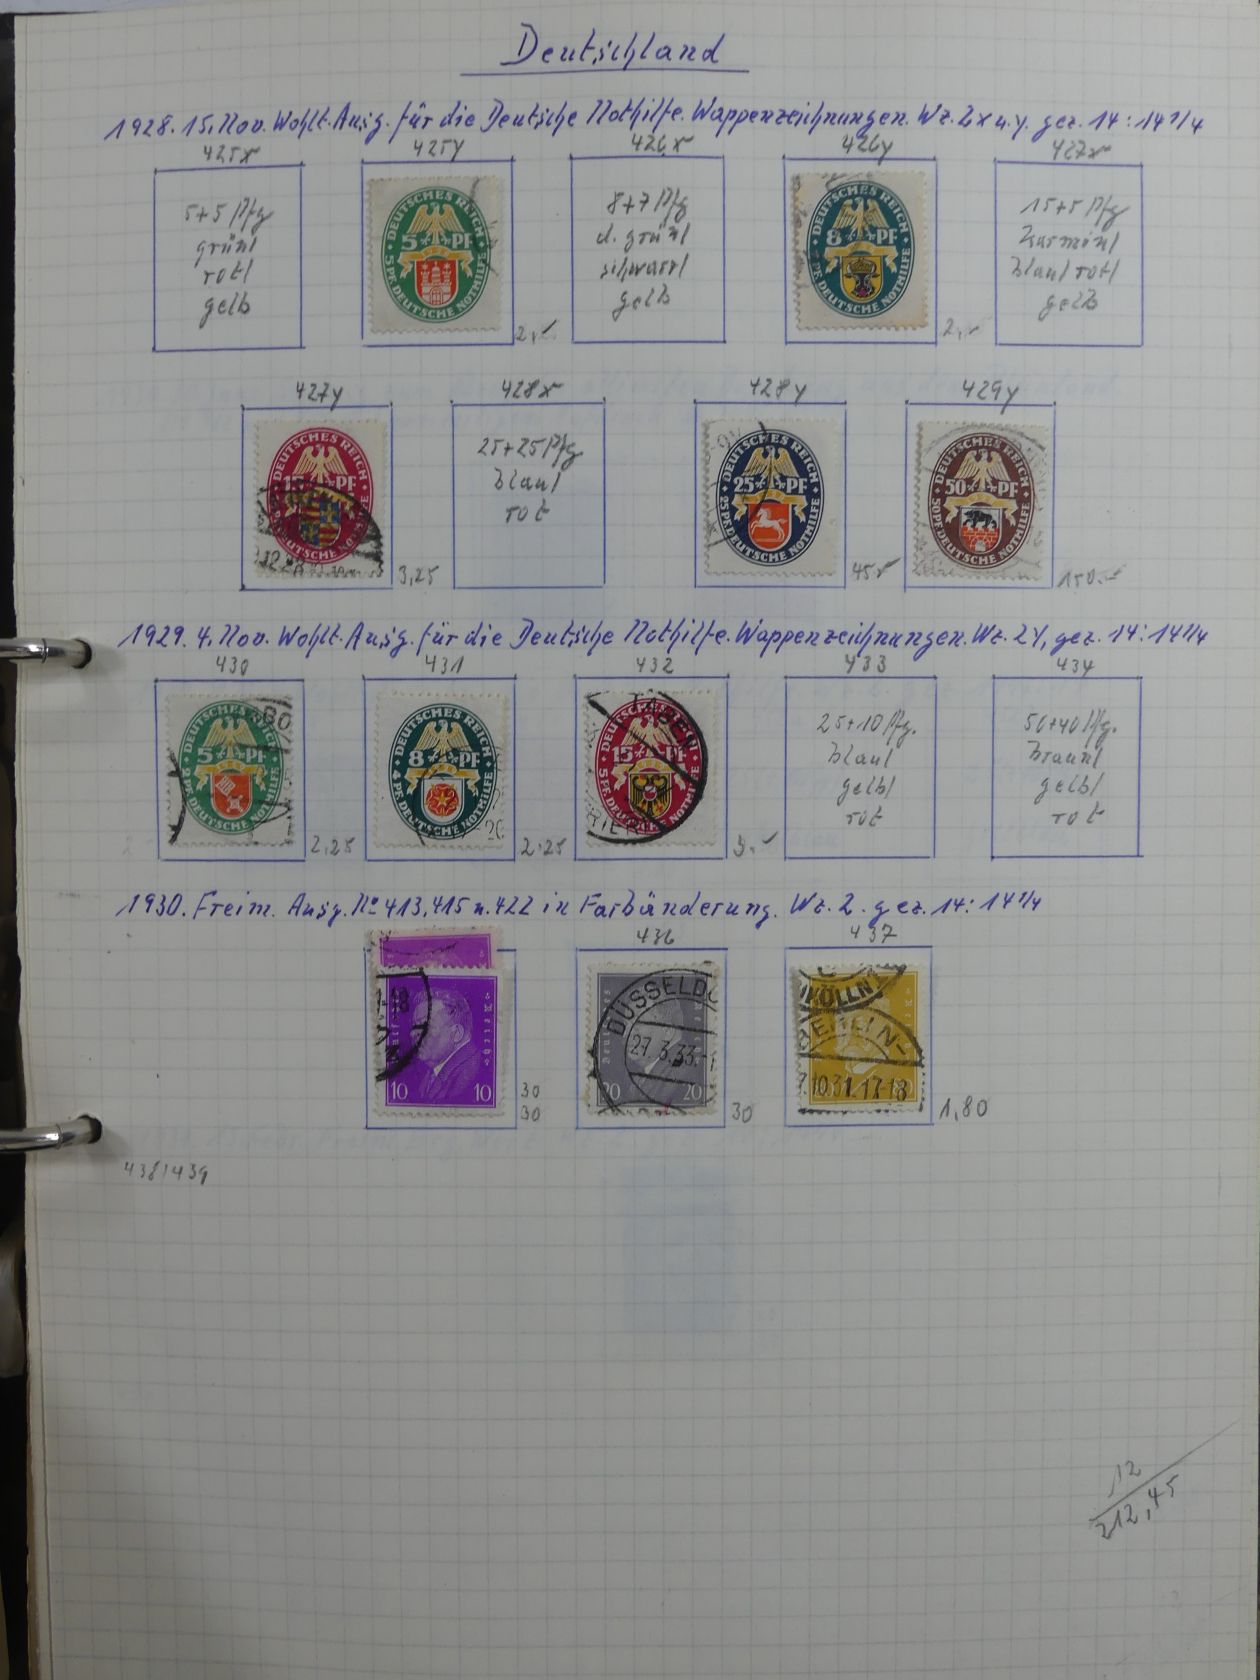 Deutschland
1928. 15. Nov. Wohlt. Ausg. für die Deutsche Nothilfe. Wappenzeichnungen. Wz. 2x u. y. gez. 14:14 1/4
425x 425y 426x 426y 427x
5+5 Pfg
grün/
rot/
gelb
DEUTSCHES REICH
5 PF
5 PF. DEUTSCHE NOTHILFE
2,-
8+7 Pfg
d. grün/
schwarz/
gelb
DEUTSCHES REICH
8 PF
DEUTSCHE NOTHILFE
2,-
15+5 Pfg
Karmin/
blau/rot/
gelb
427y 428x 428y 429y
DEUTSCHES REICH
15 PF
DEUTSCHE NOTHILFE
3,25
25+25 Pfg
blau/
rot
DEUTSCHES REICH
25 PF
25 PF. DEUTSCHE NOTHILFE
45,-
DEUTSCHES REICH
50 PF
50 PF. DEUTSCHE NOTHILFE
150.-
1929. 4. Nov. Wohlt. Ausg. für die Deutsche Nothilfe. Wappenzeichnungen. Wz. 2Y, gez. 14:14 1/4
430 431 432 433 434
DEUTSCHES REICH
5 PF
2 PF. DEUTSCHE NOTHILFE
2,25
DEUTSCHES REICH
8 PF
4 PF. DEUTSCHE NOTHILFE
2.25
DEUTSCHES REICH
15 PF
5 PF. DEUTSCHE NOTHILFE
3.-
25+10 Pfg.
Blau/
gelb/
rot
50+40 Pfg.
Braun/
gelb/
rot
1930. Freim. Ausg. No 413, 415 u. 422 in Farbänderung. Wz. 2. gez. 14:14 1/4
436 437
10 10
30
30
DÜSSELDO
27.3.33.-1
20 20
30
KÖLLN
BERLIN-
7.10.31.17-18
1,80
438/439
12
212,45